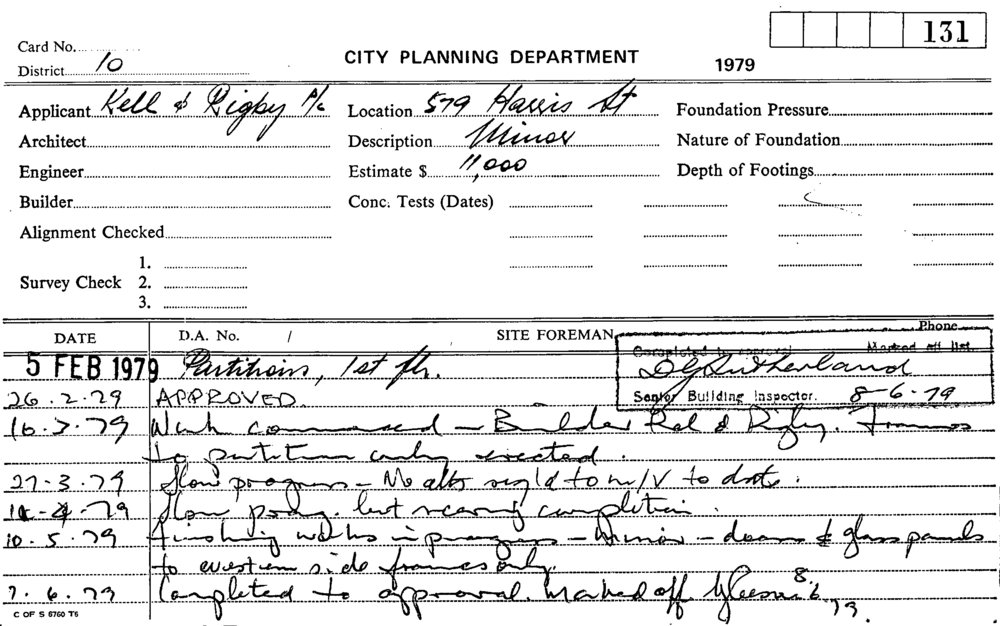 131
Card No.
CITY PLANNING DEPARTMENT 1979
District 10
Applicant Kell & Rigby P/L Location 579 Harris St Foundation Pressure
Architect Description Minor Nature of Foundation
Engineer Estimate $ 11,000 Depth of Footings
Builder Conc. Tests (Dates)
Alignment Checked
1.
Survey Check 2.
3.
DATE D.A. No. / SITE FOREMAN Phone
Completed to approval Marked off list.
5 FEB 1979 Partitions, 1st flr. Sutherland
Senior Building Inspector. 8-6-79
26.2.79 APPROVED.
16.3.79 Work commenced - Builder Kel & Rigby. Frames
to partition only erected.
27-3.79 Slow progress - No alts req'd to m/V to date.
79 Slow prog. but nearing completion.
10.5.79 Finishing works in progress - Minor - doors & glass panels
to western side frames only.
7.6.79 Completed to approval. Marked off 8.6.79.
C OF S 6760 T6